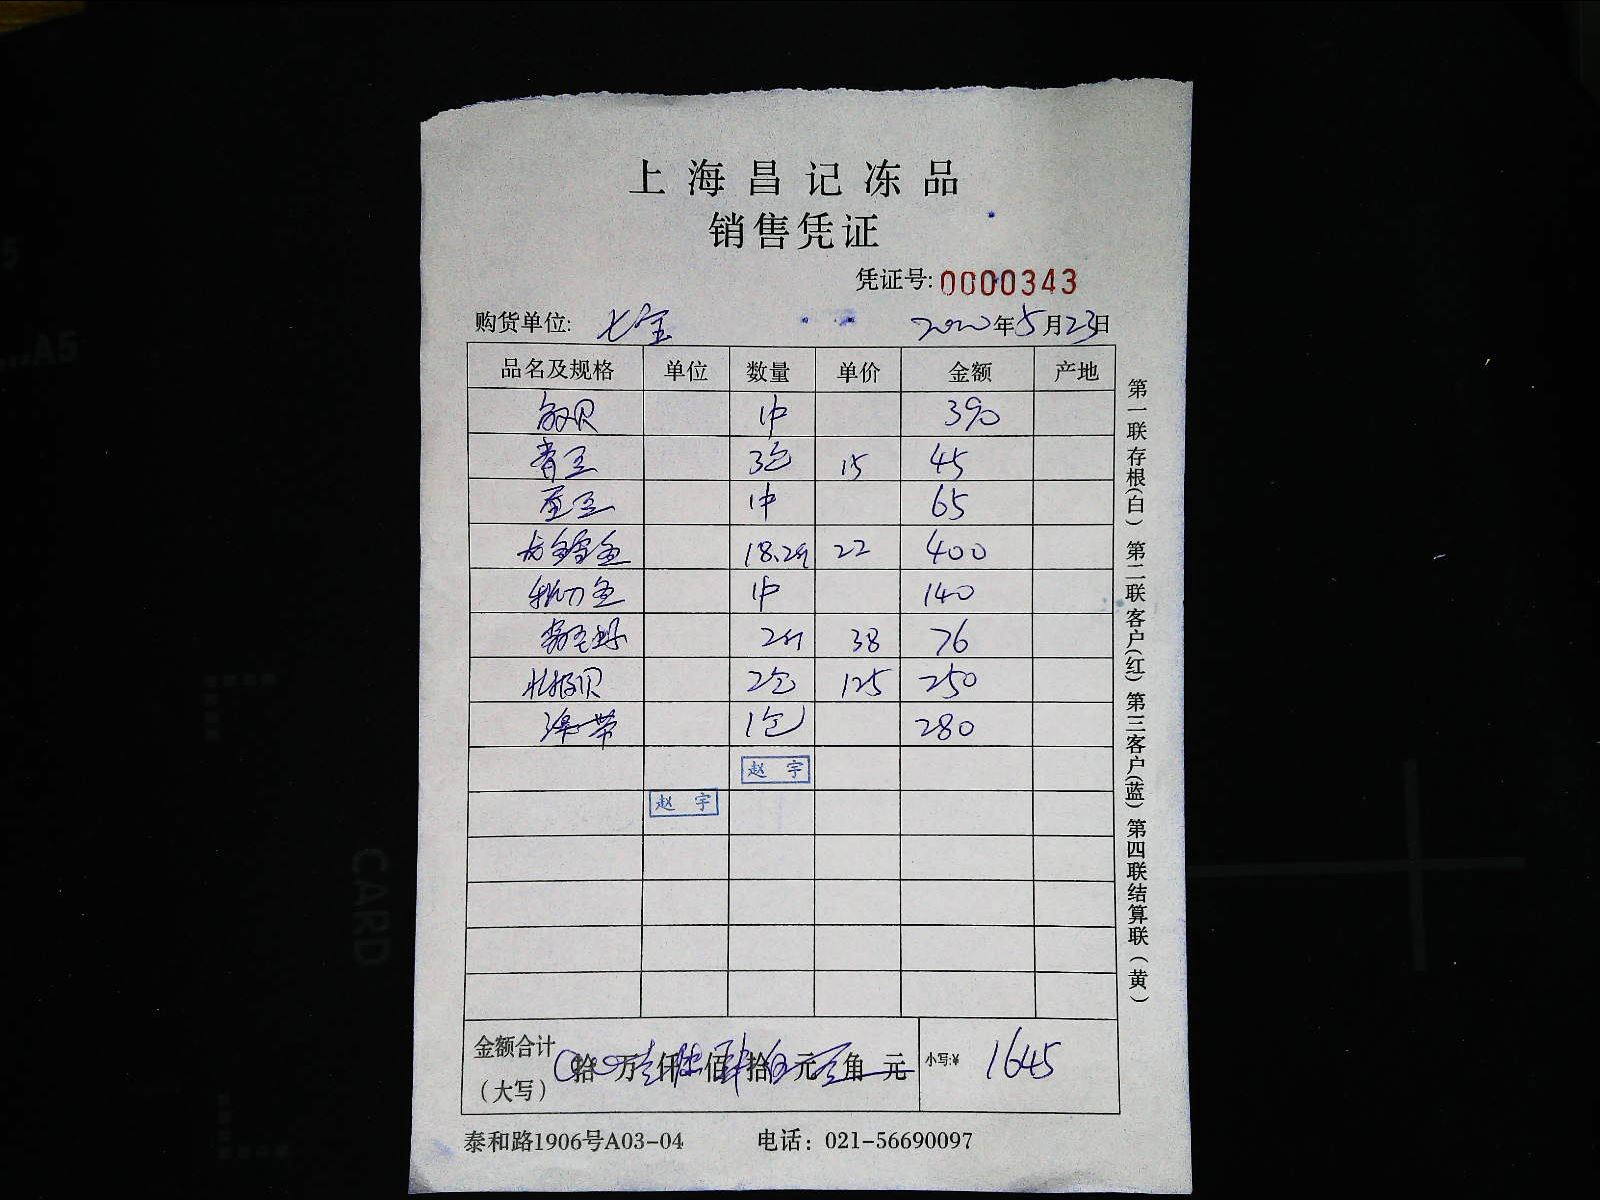 上海昌记冻品
销售凭证
凭证号:0000343
购货单位: 七宝 2020年5月23日
品名及规格 单位 数量 单价 金额 产地
贝 1件 390
青豆 3包 15 45
豆 1件 65
龙鳕鱼 18.2斤 22 400
秋刀鱼 1件 140
2斤 38 76
北极贝 2包 125 250
海带 1包 280
赵宇
赵宇
金额合计
(大写) 拾 万壹仟陆佰肆拾伍元 角 元 小写:¥ 1645
泰和路1906号A03-04 电话: 021-56690097
第一联存根(白) 第二联客户(红) 第三客户(蓝) 第四联结算联(黄)